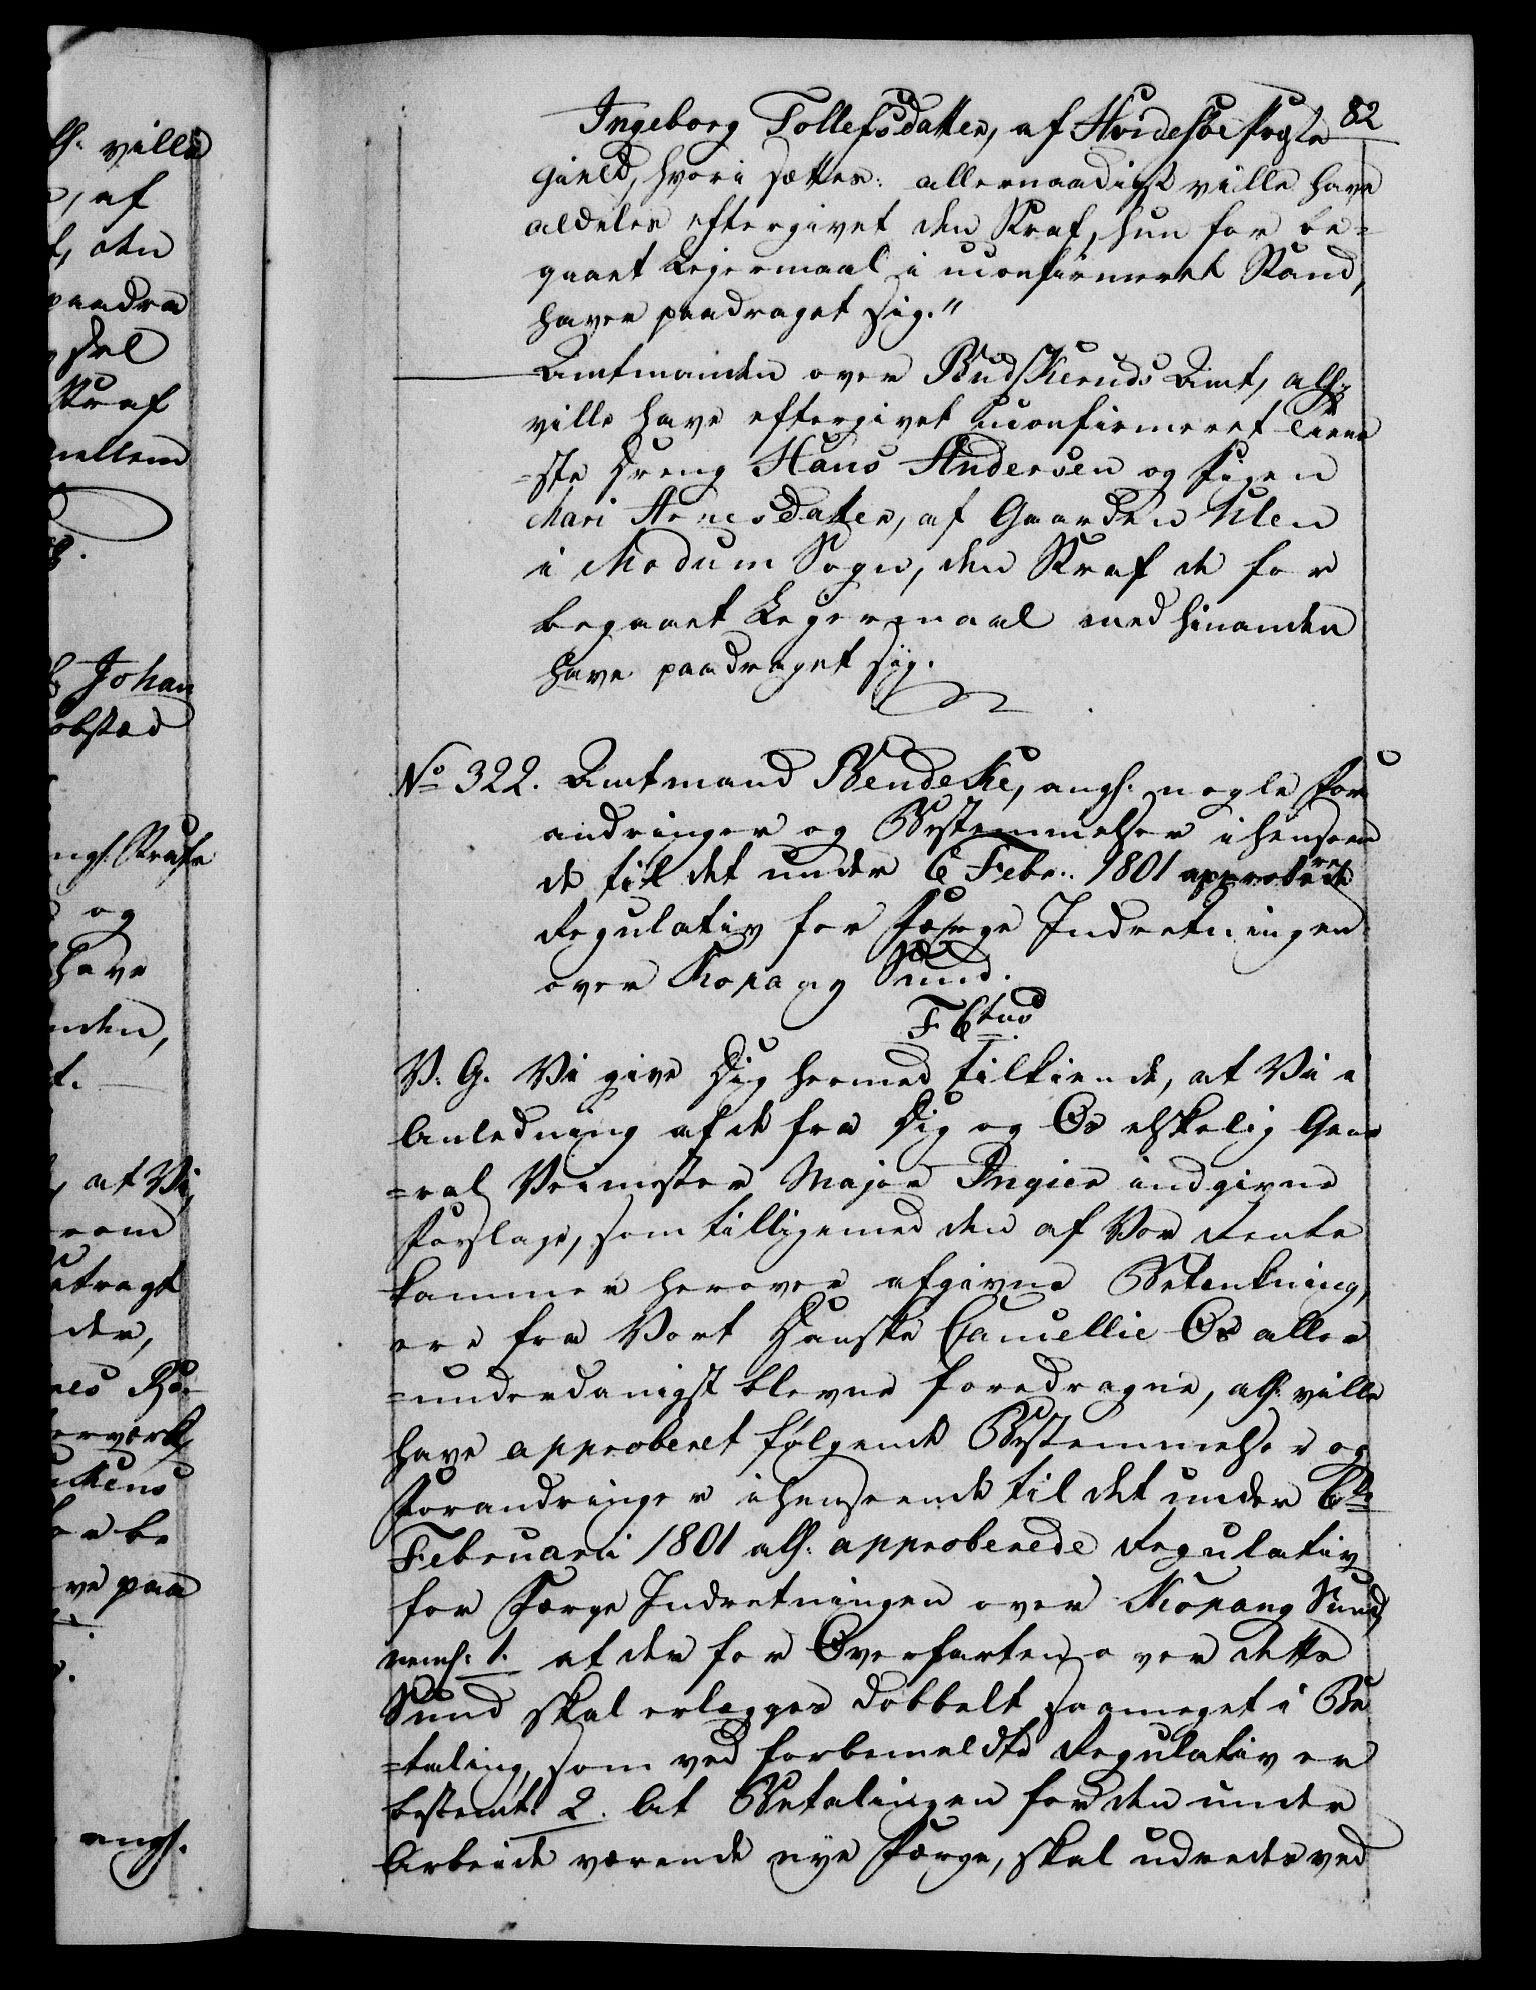 82
Ingeborg Tollefsdatter, af Hvidesøe Præste
gield, hvori sættes: allernaadigst ville have
aldeles eftergivet den Straf, hun for be=
gaaet Lejermaal i uconfirmeret Stand,
haver paadraget sig."
Amtmanden over Budskeruds Amt, allf:
ville have eftergivet uconfirmeret Tiene
=ste Dreng Hans Andersen og Pigen
Mari Arnesdatter, af Gaarden Ulen
i Modum Sogn, den Straf de for
begaaet Lejermaal med hinanden
have paadraget sig.
No 322. Amtmand Bendeke, angf. nogle For
andringer og Bestemmelser i henseen
de til det under 6 Febr. 1801 approberede
Regulativ for Færge Indretningen
over Kopang Sund.
F. Ctus
V. G. Vi give Dig hermed tilkiende, at Vi i
Anledning af de fra Dig og Os elskelig Gene
=ral Veimester Major Pngier indgivne
Forslage, som tilligemed den af Vor Rente
kammer herover afgivne Betænkning,
ere fra Vort Danske Cancellie Os aller
=underdanigst blevne foredragne, allf. ville
have approberet følgende Bestemmelser og
Forandringer i henseende til det under 6te
Februarii 1801 allf. approberede Regulativ
for Færge Indretningen over Kopang Sund,
nemf: 1. at der for Overfarten over dette
Sund skal erlægges dobbelt saameget i Be
=taling, som ved forbemeldte Regulativ er
bestemt. 2. At Betalingen for den under
Arbeide værende nye Færge, skal udredes ved